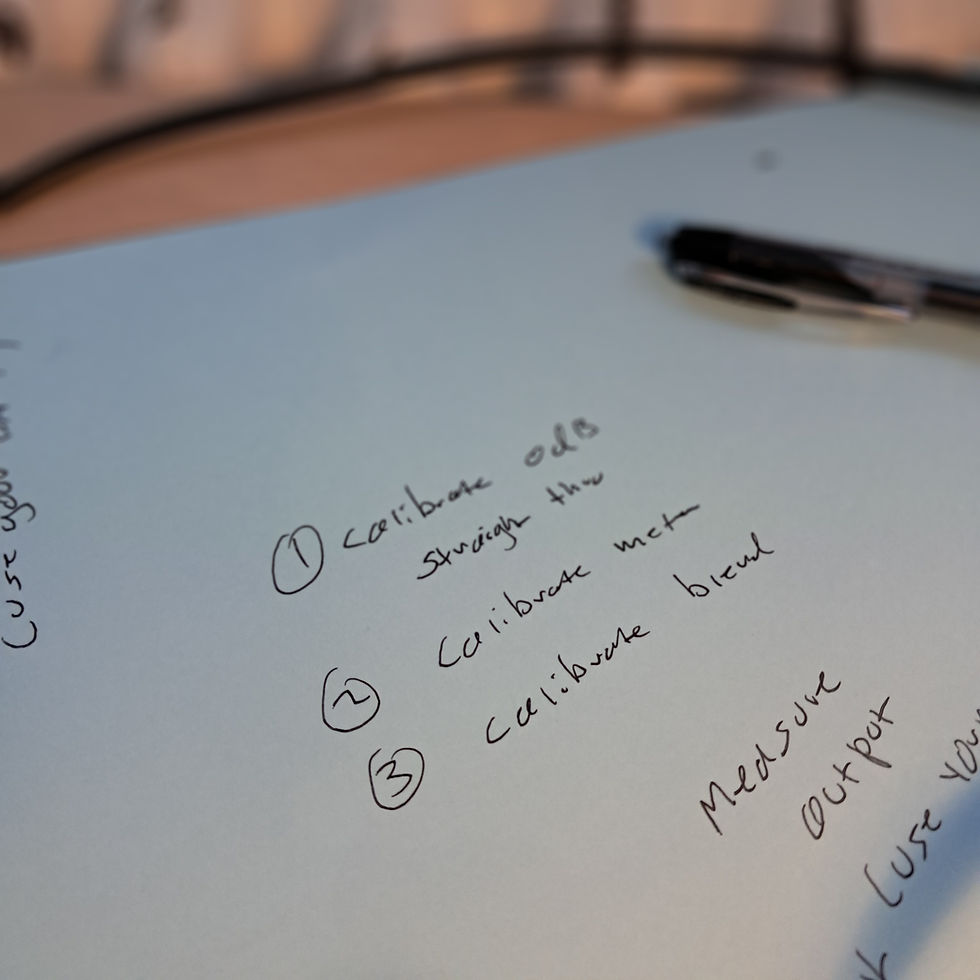 (use your
① calibrate 0dB
straigh thru
② Calibrate meter
③ calibrate blend
Measure
output
(use your